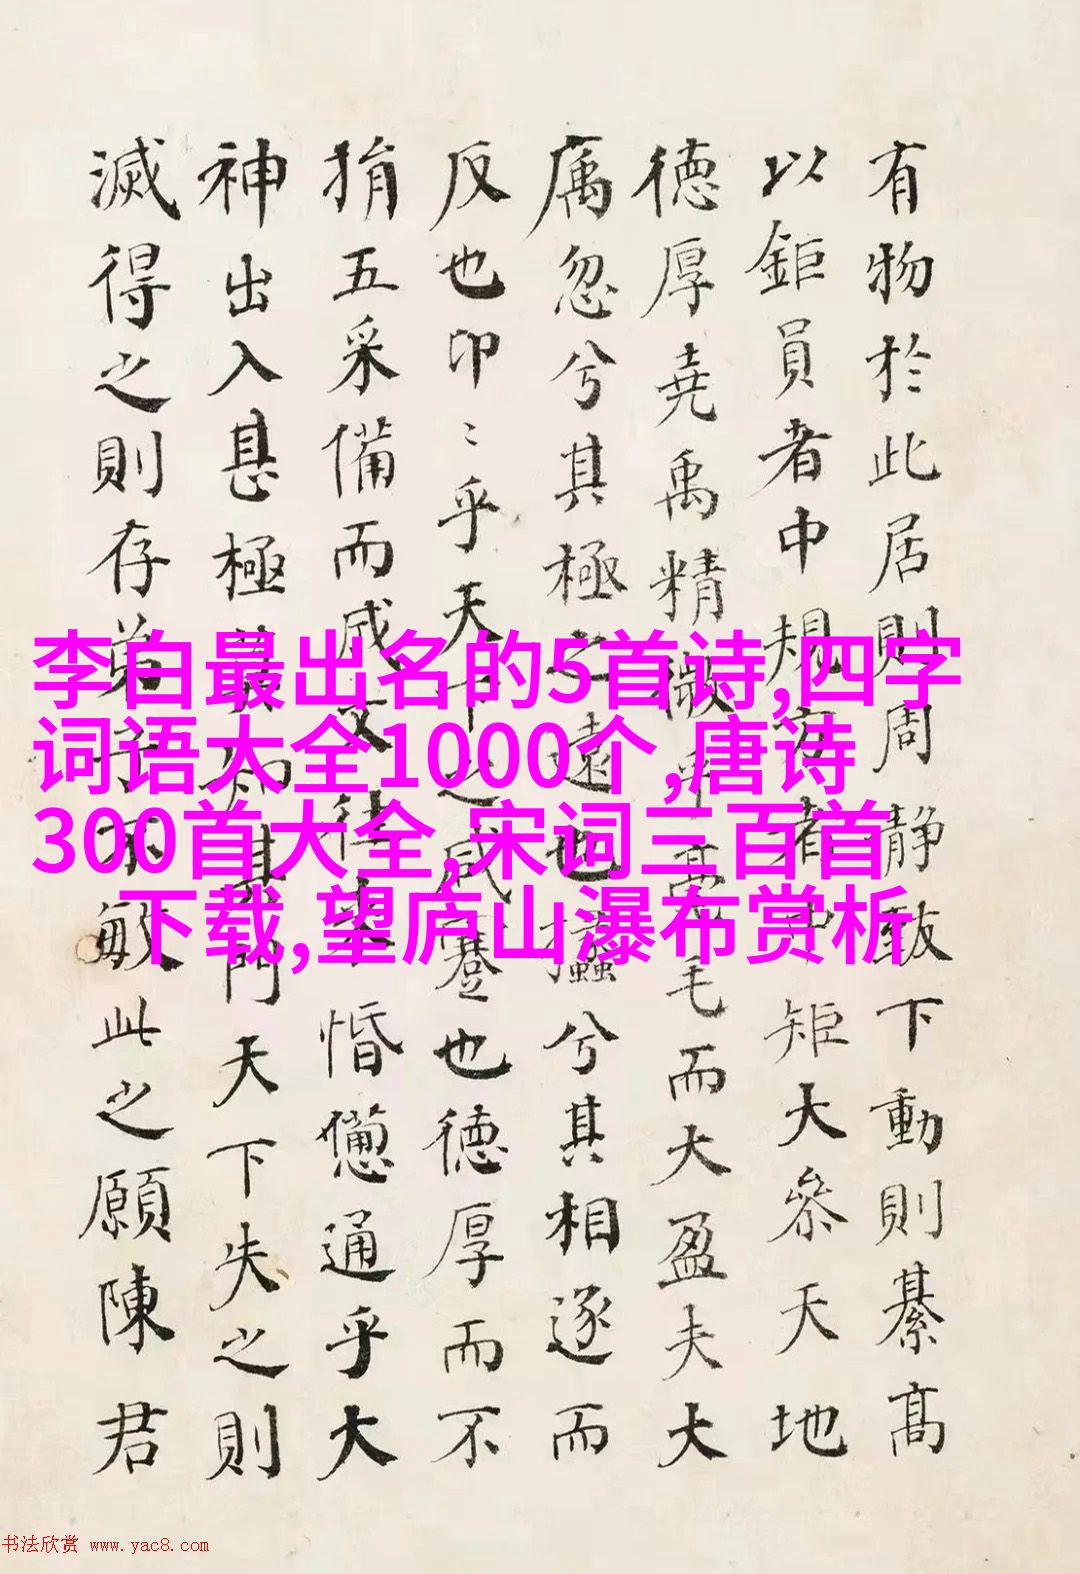 有物於此居則周靜致下動則綦高
以鉅員者中規方者中矩大參天地
德厚堯禹精微乎毫毛而大盈夫大
厲忽兮其極之遠也攭兮其相逐而
反也卬〻乎天下之咸蹇也德厚而不
捐五采備而成文往來惛憊通乎大
神出入甚極莫知其門天下失之則
滅得之則存弟子不敏此之願陳君
李白最出名的5首诗,四字
词语大全1000个,唐诗
300首大全,宋词三百首
下载,望庐山瀑布赏析
书法欣赏 www.yac8.com